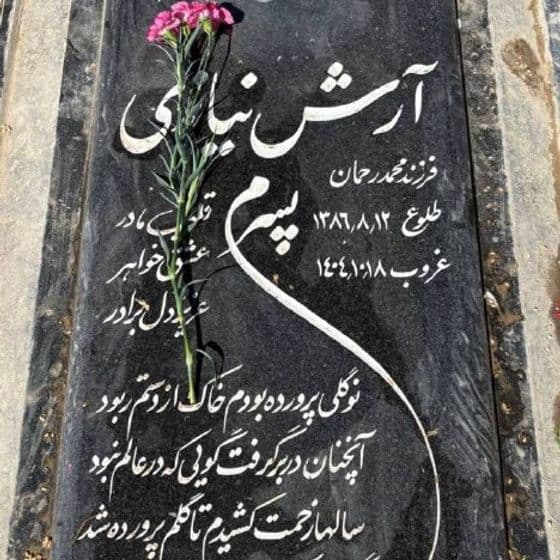 آرش
فرزند محمدرحمان
طلوع ۱۳۸۶٫۸٫۱۲
غروب ۱۴۰۴٫۱۰٫۱۸
پسرم
مادر
عشق خواهر
عزیز دل برادر
نوگلی پرورده بودم خاک از دستم ربود
آنچنان در بر گرفت گویی که در عالم نبود
سالها زحمت کشیدم تا گلم پرورده شد